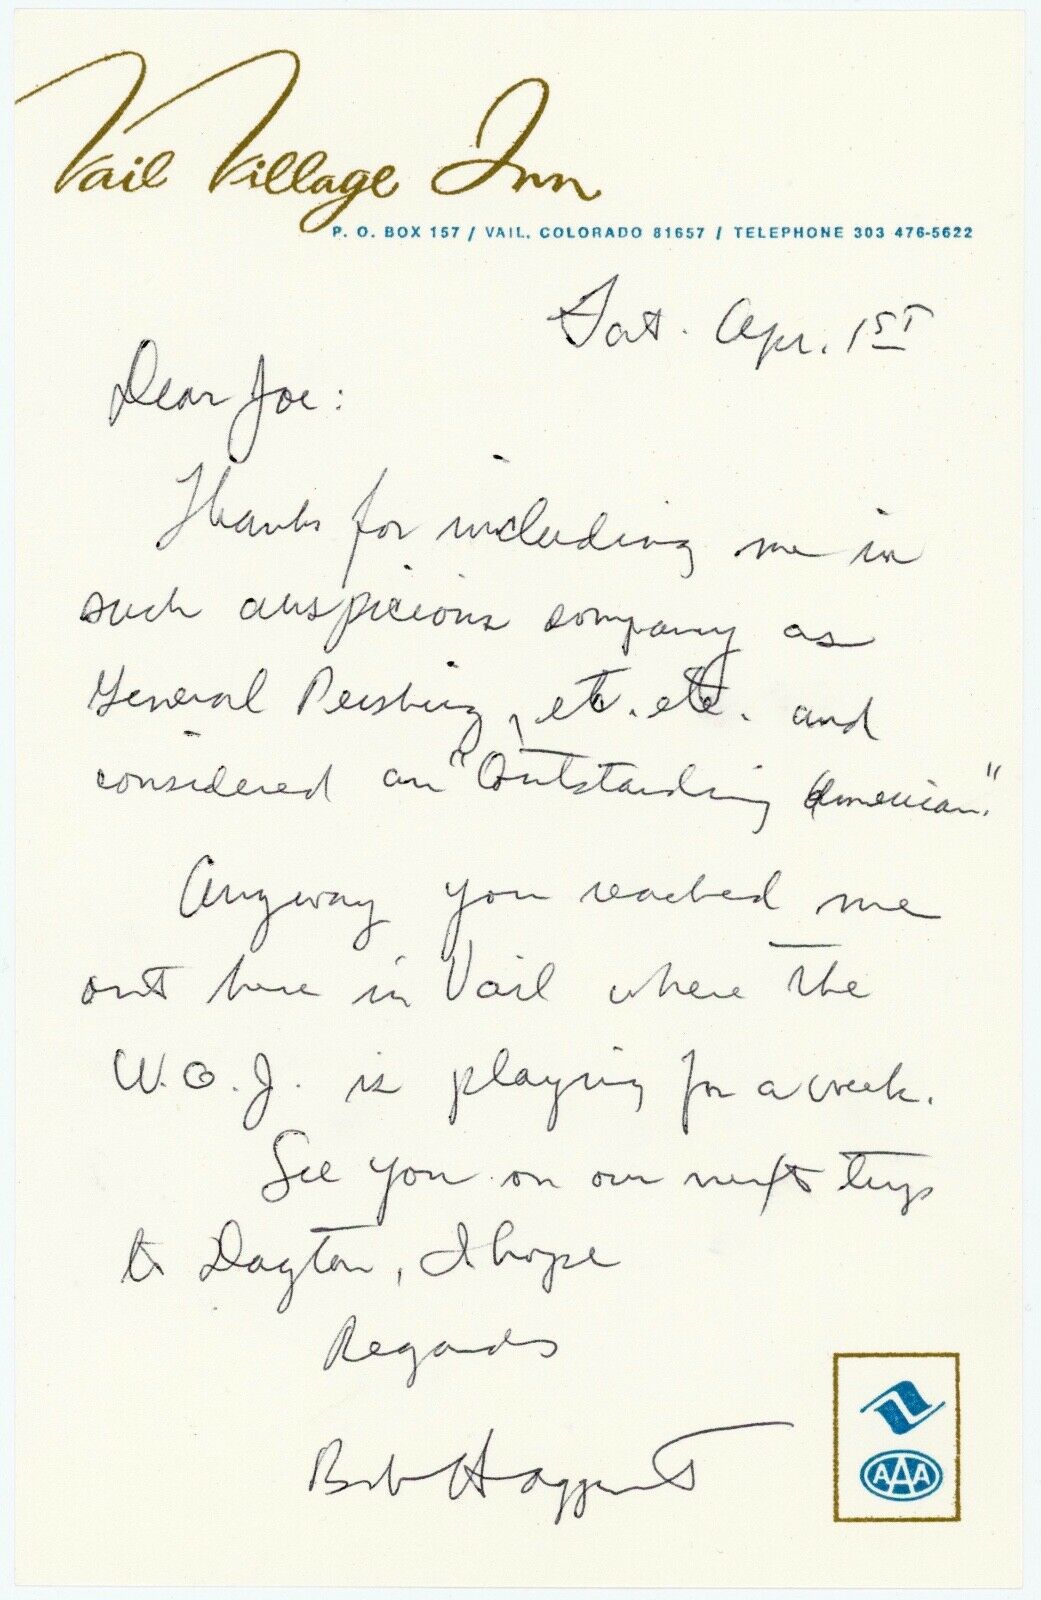 Vail Village Inn
P. O. BOX 157 / VAIL, COLORADO 81657 / TELEPHONE 303 476-5622
Sat. Apr. 1ST
Dear Joe:
Thanks for including me in
such auspicious company as
General Pershing, etc. etc. and
considered an "Outstanding American."
Anyway you reached me
out here in Vail where the
W.G.J. is playing for a week.
See you on our next trip
to Dayton, I hope
Regards
Bob Haggart
AAA